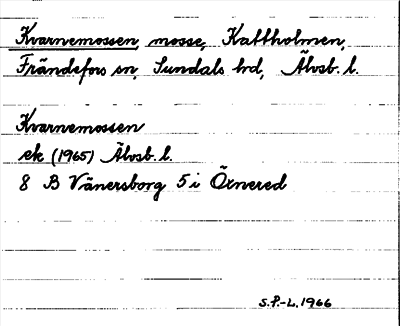 Kvarnemossen, mosse, Kattholmen,
Frändefors sn, Sundals hd, Älvsb. l.
Kvarnemossen
ek (1965) Älvsb. l.
8 B Vänersborg 5 i Örnered
S.P.-L. 1966